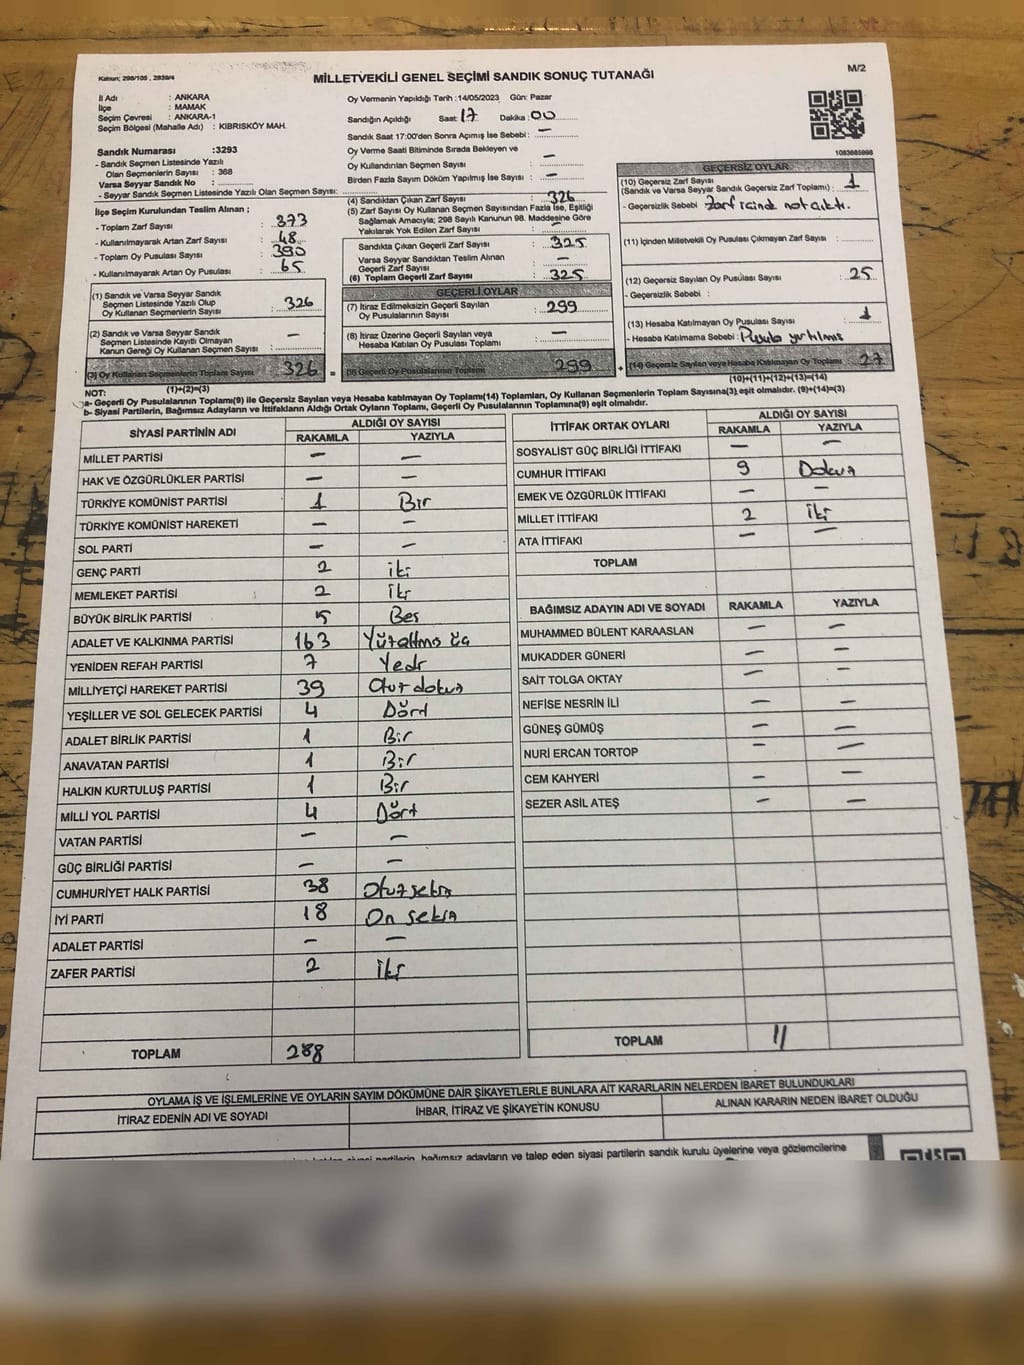 Kanun; 298/105 , 2839/4
MİLLETVEKİLİ GENEL SEÇİMİ SANDIK SONUÇ TUTANAĞI
M/2
İl Adı : ANKARA
İlçe : MAMAK
Seçim Çevresi : ANKARA-1
Seçim Bölgesi (Mahalle Adı) : KIBRISKÖY MAH.
Sandık Numarası :3293
- Sandık Seçmen Listesinde Yazılı
Olan Seçmenlerin Sayısı : 368
Varsa Seyyar Sandık No :
- Seyyar Sandık Seçmen Listesinde Yazılı Olan Seçmen Sayısı:
İlçe Seçim Kurulundan Teslim Alınan ;
- Toplam Zarf Sayısı : 373
- Kullanılmayarak Artan Zarf Sayısı : 48
- Toplam Oy Pusulası Sayısı : 390
- Kullanılmayarak Artan Oy Pusulası : 65
(1) Sandık ve Varsa Seyyar Sandık
Seçmen Listesinde Yazılı Olup
Oy Kullanan Seçmenlerin Sayısı : 326
(2) Sandık ve Varsa Seyyar Sandık
Seçmen Listesinde Kayıtlı Olmayan
Kanun Gereği Oy Kullanan Seçmen Sayısı : —
(3) Oy Kullanan Seçmenlerin Toplam Sayısı 326 =
(1)+(2)=(3)
Oy Vermenin Yapıldığı Tarih :14/05/2023 Gün: Pazar
Sandığın Açıldığı Saat: 17 Dakika : 00
Sandık Saat 17:00'den Sonra Açımış İse Sebebi : —
Oy Verme Saati Bitiminde Sırada Bekleyen ve
Oy Kullandırılan Seçmen Sayısı : —
Birden Fazla Sayım Döküm Yapılmış İse Sayısı : —
(4) Sandıktan Çıkan Zarf Sayısı : 326
(5) Zarf Sayısı Oy Kullanan Seçmen Sayısından Fazla İse, Eşitliği
Sağlamak Amacıyla; 298 Sayılı Kanunun 98. Maddesine Göre
Yakılarak Yok Edilen Zarf Sayısı : —
Sandıkta Çıkan Geçerli Zarf Sayısı : 325
Varsa Seyyar Sandıktan Teslim Alınan
Geçerli Zarf Sayısı : —
(6) Toplam Geçerli Zarf Sayısı : 325
GEÇERLİ OYLAR
(7) İtiraz Edilmeksizin Geçerli Sayılan
Oy Pusulalarının Sayısı : 299
(8) İtiraz Üzerine Geçerli Sayılan veya
Hesaba Katılan Oy Pusulası Toplamı : —
(9) Geçerli Oy Pusulalarının Toplamı 299 +
1083665998
GEÇERSİZ OYLAR
(10) Geçersiz Zarf Sayısı : 1
(Sandık ve Varsa Seyyar Sandık Geçersiz Zarf Toplamı)
- Geçersizlik Sebebi : Zarf içinde not çıktı.
(11) İçinden Milletvekili Oy Pusulası Çıkmayan Zarf Sayısı :
(12) Geçersiz Sayılan Oy Pusulası Sayısı : 25
- Geçersizlik Sebebi :
(13) Hesaba Katılmayan Oy Pusulası Sayısı : 1
- Hesaba Katılmama Sebebi : Pusula yırtılmış
(14) Geçersiz Sayılan veya Hesaba Katılmayan Oy Toplamı 27
(10)+(11)+(12)+(13)=(14)
NOT:
a- Geçerli Oy Pusulalarının Toplamı(9) ile Geçersiz Sayılan veya Hesaba katılmayan Oy Toplamı(14) Toplamları, Oy Kullanan Seçmenlerin Toplam Sayısına(3) eşit olmalıdır. (9)+(14)=(3)
b- Siyasi Partilerin, Bağımsız Adayların ve İttifakların Aldığı Ortak Oyların Toplamı, Geçerli Oy Pusulalarının Toplamına(9) eşit olmalıdır.
SİYASİ PARTİNİN ADI ALDIĞI OY SAYISI
RAKAMLA YAZIYLA
MİLLET PARTİSİ — —
HAK VE ÖZGÜRLÜKLER PARTİSİ — —
TÜRKİYE KOMÜNİST PARTİSİ 1 Bir
TÜRKİYE KOMÜNİST HAREKETİ — —
SOL PARTİ — —
GENÇ PARTİ 2 iki
MEMLEKET PARTİSİ 2 İki
BÜYÜK BİRLİK PARTİSİ 5 Beş
ADALET VE KALKINMA PARTİSİ 163 Yüzaltmış üç
YENİDEN REFAH PARTİSİ 7 Yedi
MİLLİYETÇİ HAREKET PARTİSİ 39 Otuz dokuz
YEŞİLLER VE SOL GELECEK PARTİSİ 4 Dört
ADALET BİRLİK PARTİSİ 1 Bir
ANAVATAN PARTİSİ 1 Bir
HALKIN KURTULUŞ PARTİSİ 1 Bir
MİLLİ YOL PARTİSİ 4 Dört
VATAN PARTİSİ — —
GÜÇ BİRLİĞİ PARTİSİ — —
CUMHURİYET HALK PARTİSİ 38 Otuz sekiz
İYİ PARTİ 18 On sekiz
ADALET PARTİSİ — —
ZAFER PARTİSİ 2 İki
TOPLAM 288
İTTİFAK ORTAK OYLARI ALDIĞI OY SAYISI
RAKAMLA YAZIYLA
SOSYALİST GÜÇ BİRLİĞİ İTTİFAKI — —
CUMHUR İTTİFAKI 9 Dokuz
EMEK VE ÖZGÜRLÜK İTTİFAKI — —
MİLLET İTTİFAKI 2 İki
ATA İTTİFAKI — —
TOPLAM
BAĞIMSIZ ADAYIN ADI VE SOYADI RAKAMLA YAZIYLA
MUHAMMED BÜLENT KARAASLAN — —
MUKADDER GÜNERİ — —
SAİT TOLGA OKTAY — —
NEFİSE NESRİN İLİ — —
GÜNEŞ GÜMÜŞ — —
NURİ ERCAN TORTOP — —
CEM KAHYERİ — —
SEZER ASİL ATEŞ — —
TOPLAM 11
OYLAMA İŞ VE İŞLEMLERİNE VE OYLARIN SAYIM DÖKÜMÜNE DAİR ŞİKAYETLERLE BUNLARA AİT KARARLARIN NELERDEN İBARET BULUNDUKLARI
İTİRAZ EDENİN ADI VE SOYADI İHBAR, İTİRAZ VE ŞİKAYETİN KONUSU ALINAN KARARIN NEDEN İBARET OLDUĞU
siyasi partilerin, bağımsız adayların ve talep eden siyasi partilerin sandık kurulu üyelerine veya gözlemcilerine